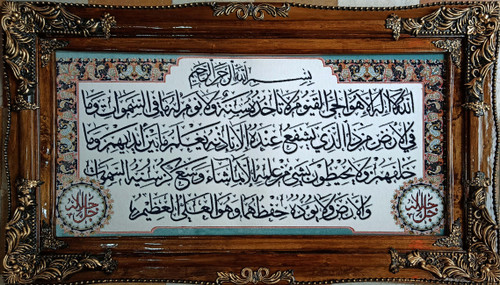 بسم الله الرحمن الرحيم
الله لا إله إلا هو الحي القيوم لا تأخذه سنة ولا نوم له ما في السموات وما
في الأرض من ذا الذي يشفع عنده إلا بإذنه يعلم ما بين أيديهم وما
خلفهم ولا يحيطون بشيء من علمه إلا بما شاء وسع كرسيه السموات
والأرض ولا يؤده حفظهما وهو العلي العظيم
جل جلاله
جل جلاله